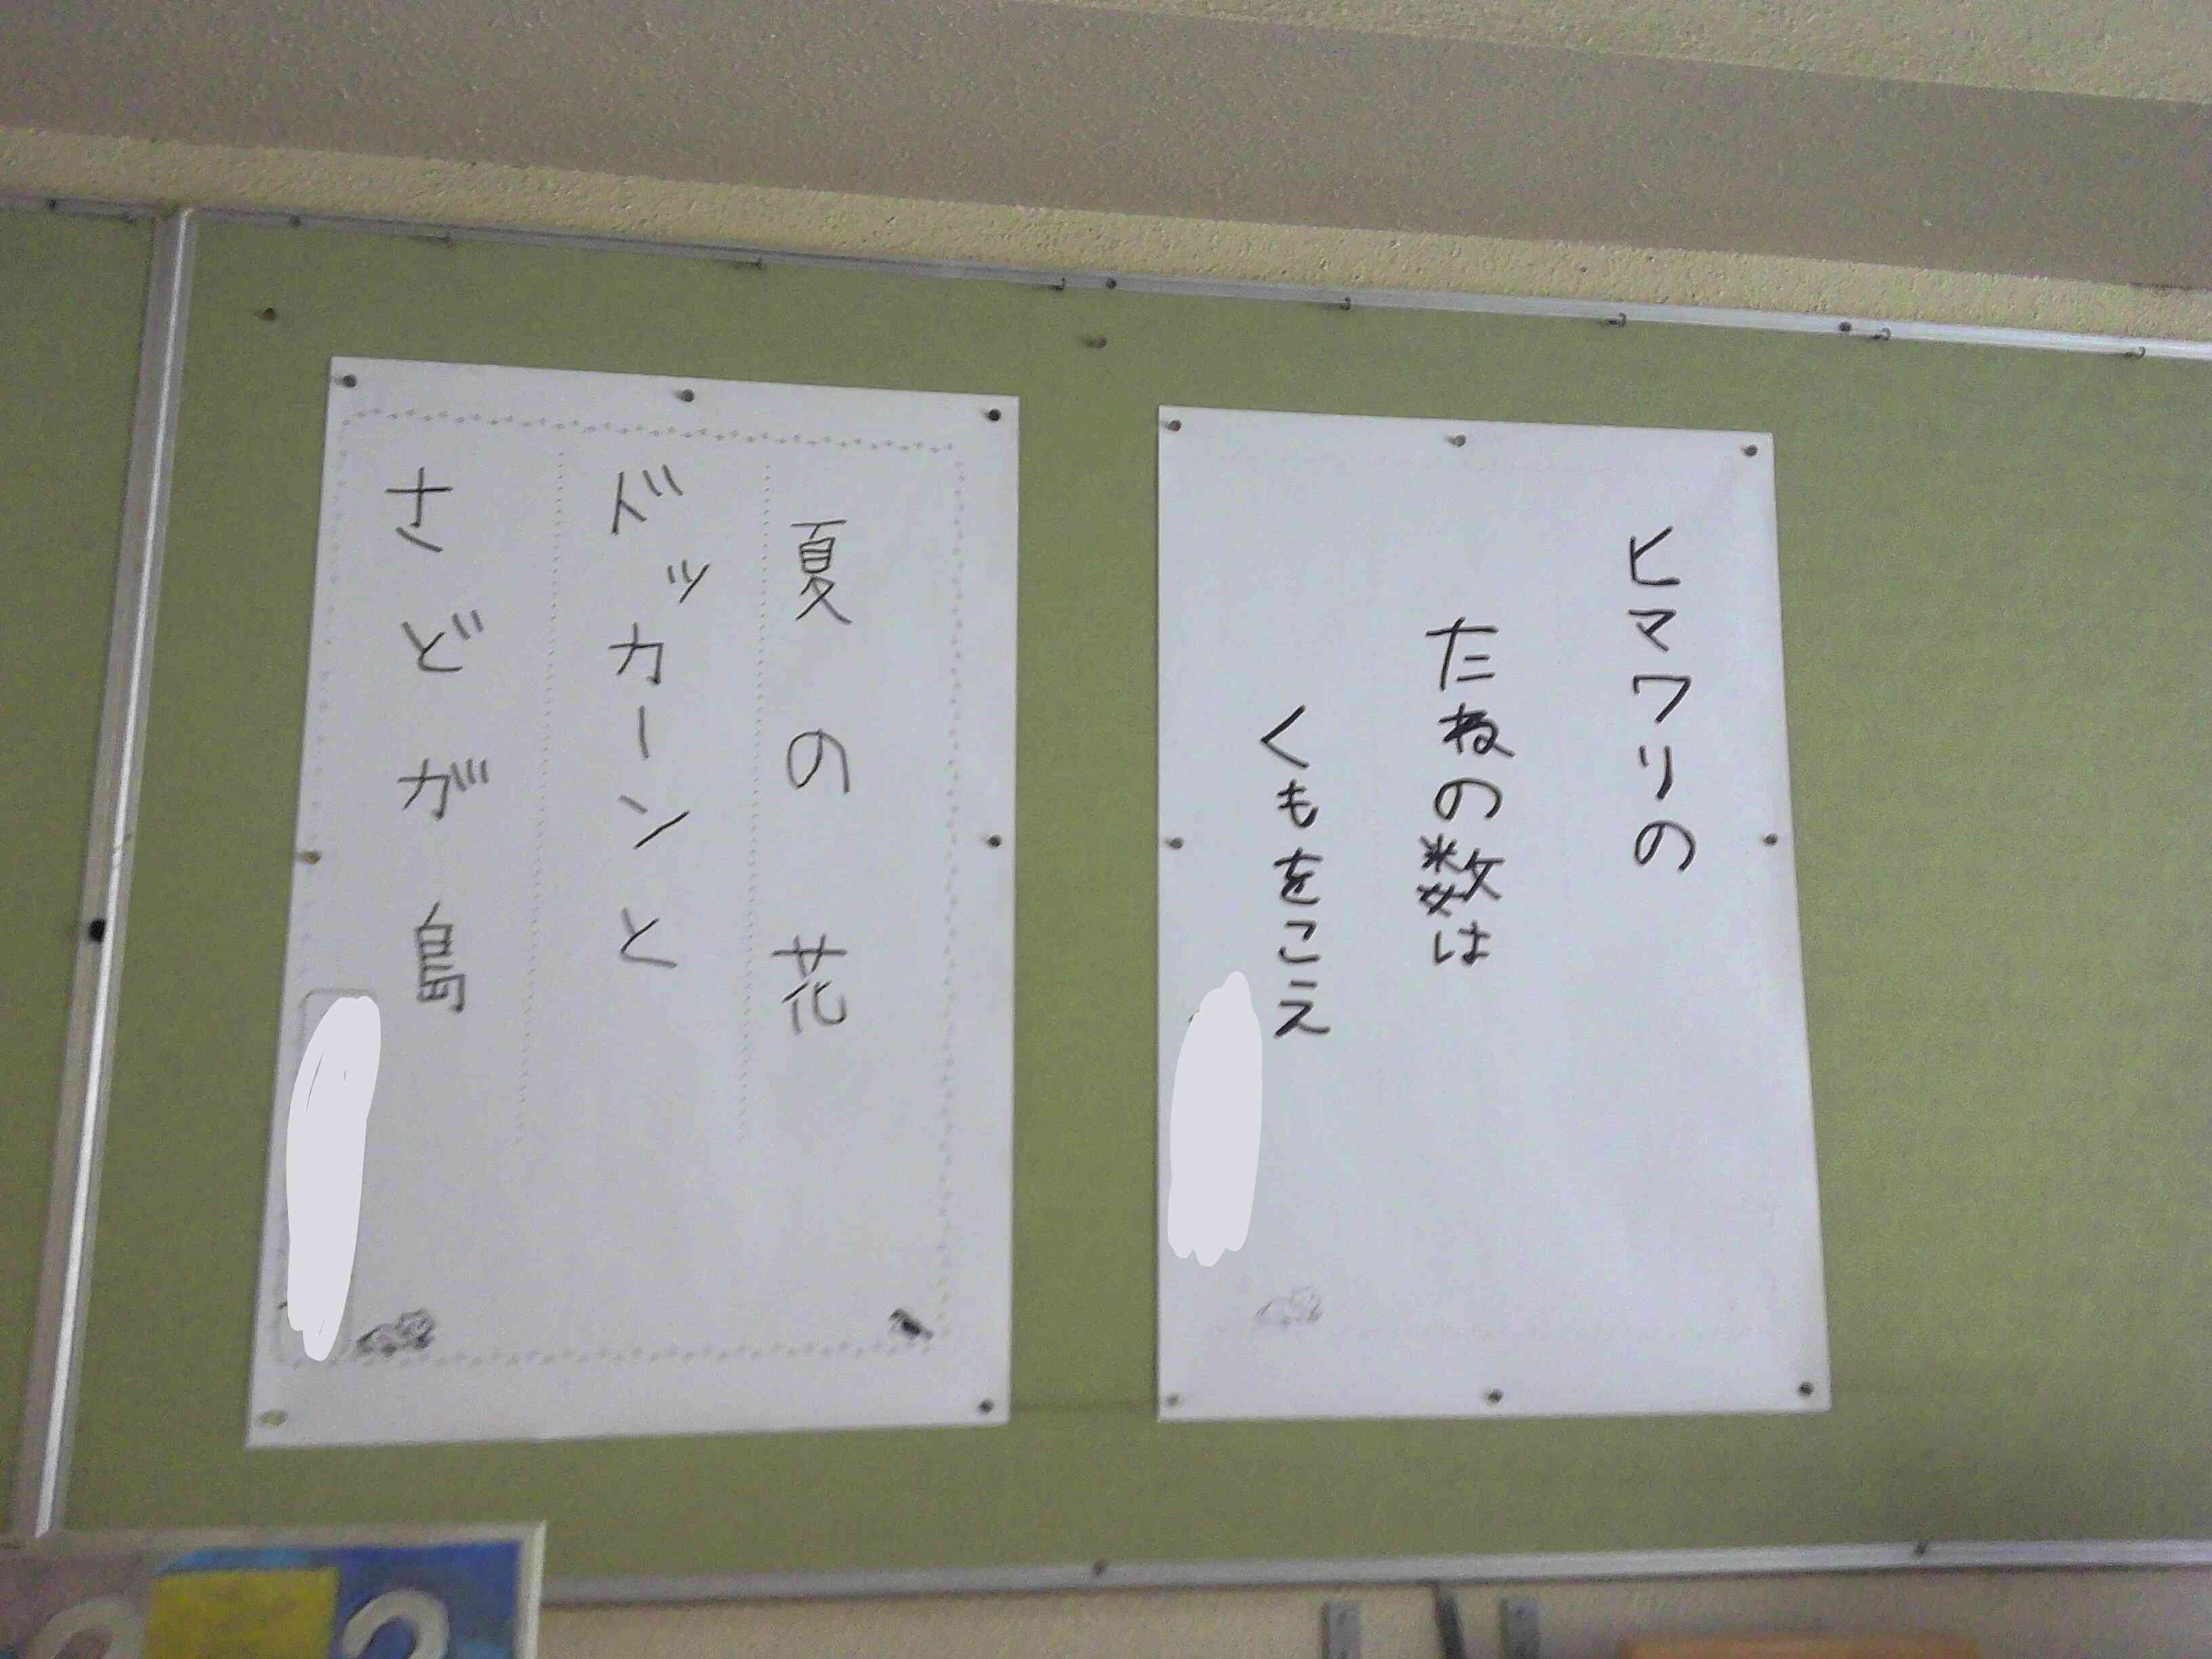 ヒマワリの
たねの数は
くもをこえ
夏の花
ドッカーンと
さどが島